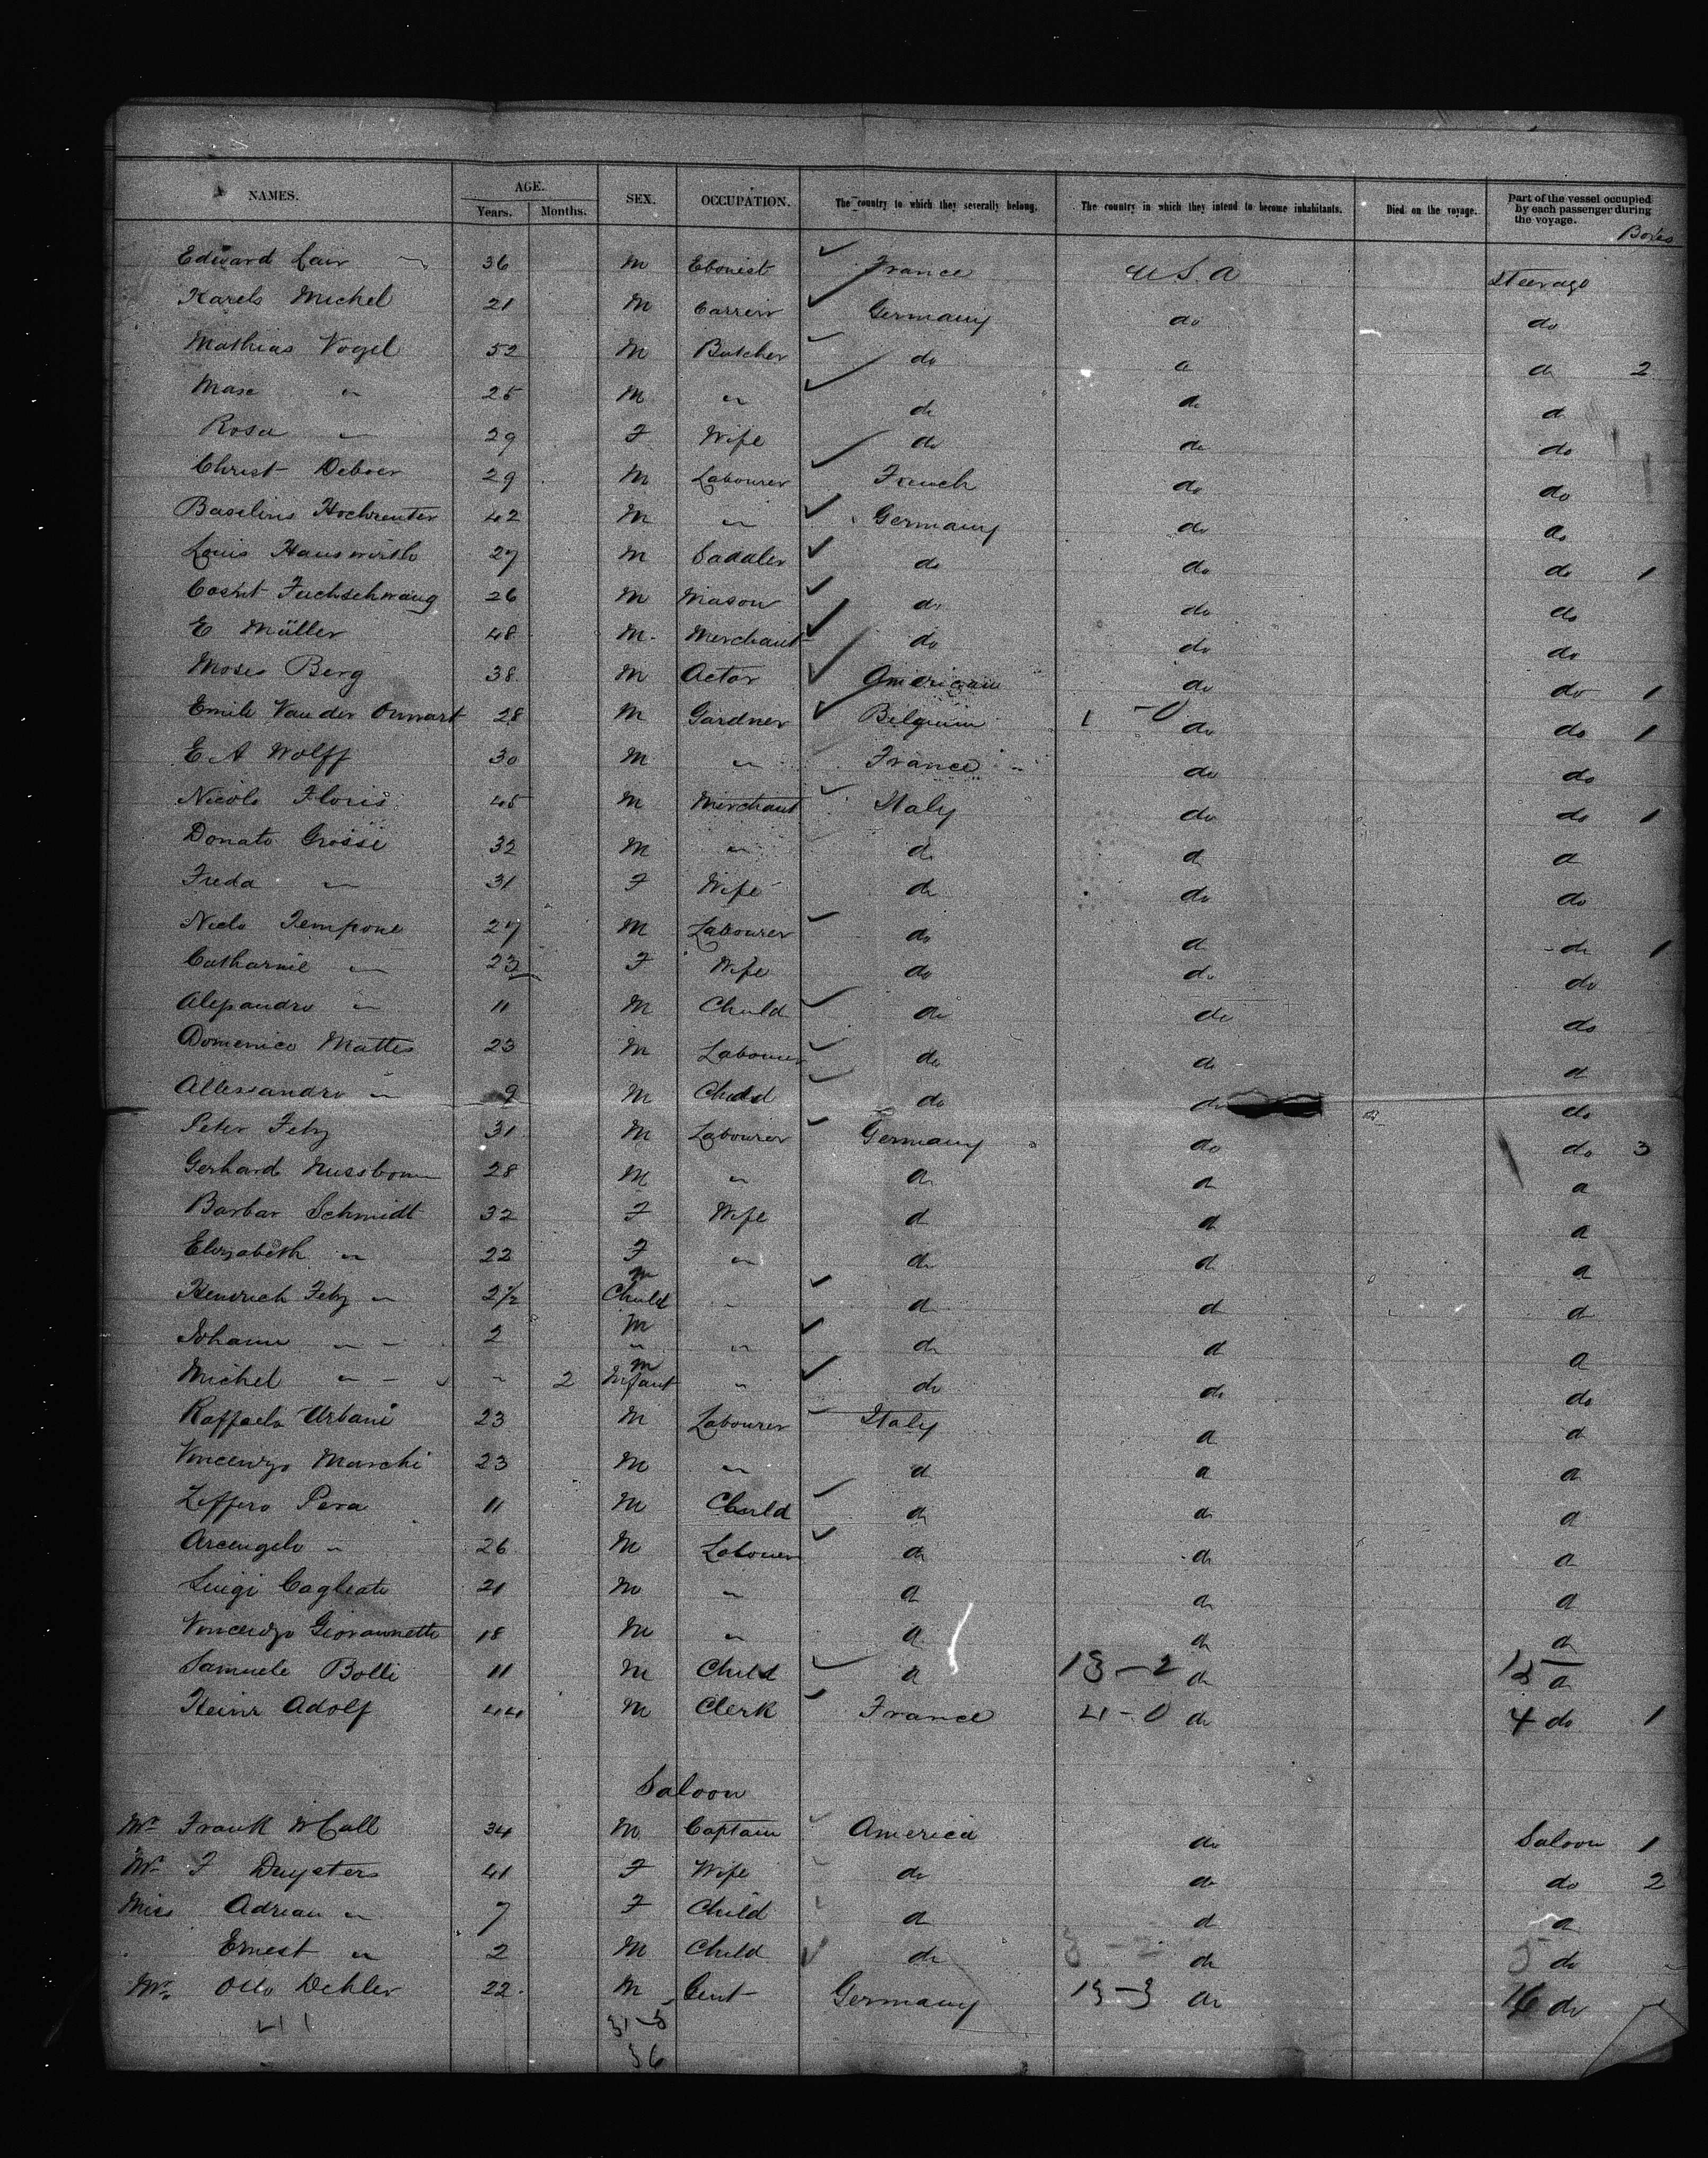 NAMES. AGE. SEX. OCCUPATION. The country to which they severally belong. The country in which they intend to become inhabitants. Died on the voyage. Part of the vessel occupied by each passenger during the voyage.
Years. Months. Boxes
Edward Lair 36 M Ebenist France U.S.A Steerage
Karels Michel 21 M Carrier Germany do do
Mathias Vogel 52 M Butcher do do do 2
Max " 25 M " do do do
Rosa " 29 F Wife do do do
Christ Deboer 29 M Labourer French do do
Baselius Hochreuter 42 M " Germany do do
Louis Hauswirth 27 M Saddler do do do 1
Fuchschwang 26 M Mason do do do
E Müller 48 M. Merchant do do do
Moses Berg 38 M Actor American do do 1
Emile Van der 28 M Gardner Belgium 1 - 0 do do 1
E A Wolff 30 M " France do do
Nicolo Floris 45 M Merchant Italy do do 1
Donato Grossi 32 M " do do do
Freda " 31 F Wife do do do
Niclo Tempone 27 M Labourer do do do 1
Catharine " 23 F Wife do do do
Alejandro " 11 M Child do do do
Domenico Mattes 23 M Labourer do do do
Allessandro " 9 M Child do do do
Peter Fetz 31 M Labourer Germany do do 3
Gerhard Nussbom 28 M " do do do
Barbar Schmidt 32 F Wife do do do
Elizabeth " 22 F " do do do
Heinrich Fetz " 2½ M Child " do do do
Johann " 2 M " " do do do
Michel " " 2 M Infant " do do do
Raffaelo Urbani 23 M Labourer Italy do do
Vincenzo Marchi 23 M " do do do
Zeffero Pera 11 M Child do do do
Arcangelo " 26 M Labourer do do do
Luigi Cagliate 21 M " do do do
Vincenzo Giovannetti 18 M " do do do
Samuele Bolli 11 M Child do 13 - 2 do 15 do
Heinr Adolf 44 M Clerk France 4 - 0 do 4 do 1
Saloon
Mr Frank McCall 34 M Captain America do Saloon 1
Mrs F Duysters 41 F Wife do do do 2
Miss Adrian " 7 F Child do do do
Ernest " 2 M Child do 3 - 2 do 5 do
Mr. Otto Dehler 22. M Gent Germany 13 - 3 do 16 do
41 31-5
36